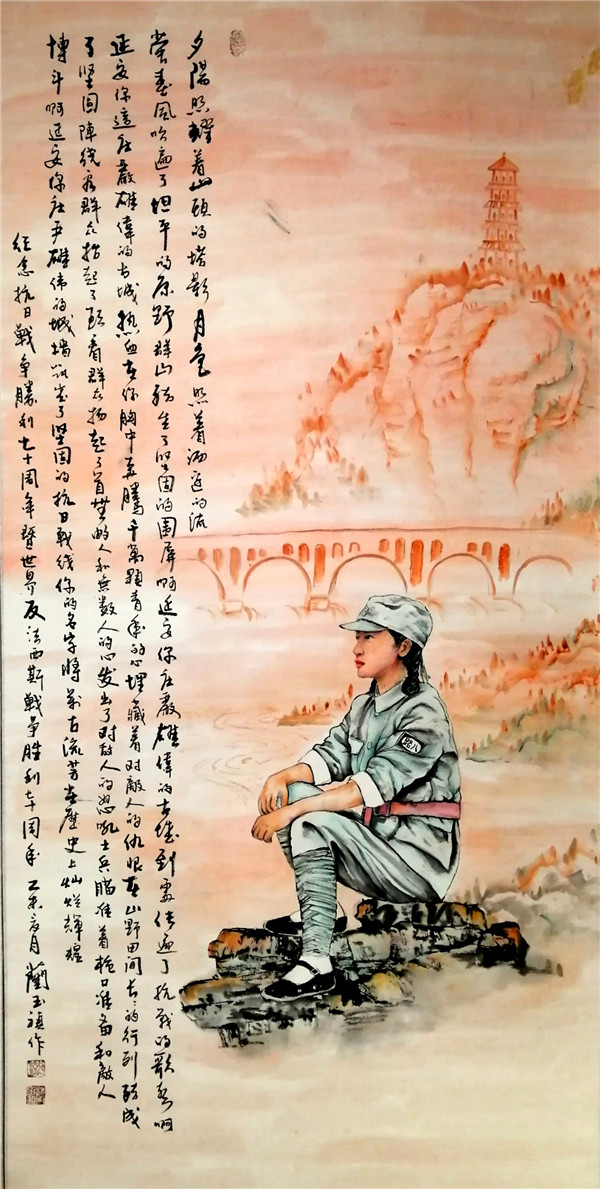 夕陽照耀着山頭的塔影月色照着河边的流
萤春風吹遍了坦平的原野群山結生了坚固的围屏啊延安你庄嚴雄偉的古城到處传遍了抗戰的歌声啊
延安你這庄嚴雄偉的古城热血在你胸中奔騰千萬顆青年的心埋藏着对敵人的仇恨在山野田间長長的行列結成
了坚固陣线看群众抬起了頭看群众扬起了首無数人和無数人的心发出了对敌人的怒吼士兵瞄准着枪口准备和敵人
博斗啊延安你庄严雄伟的城墙筑成了坚固的抗日戰线你的名字將萬古流芳在歷史上灿烂輝耀
纪念抗日戰争勝利七十周年暨世界反法西斯戰争胜利七十周年 乙未夏月 蘭玉禎作
八路